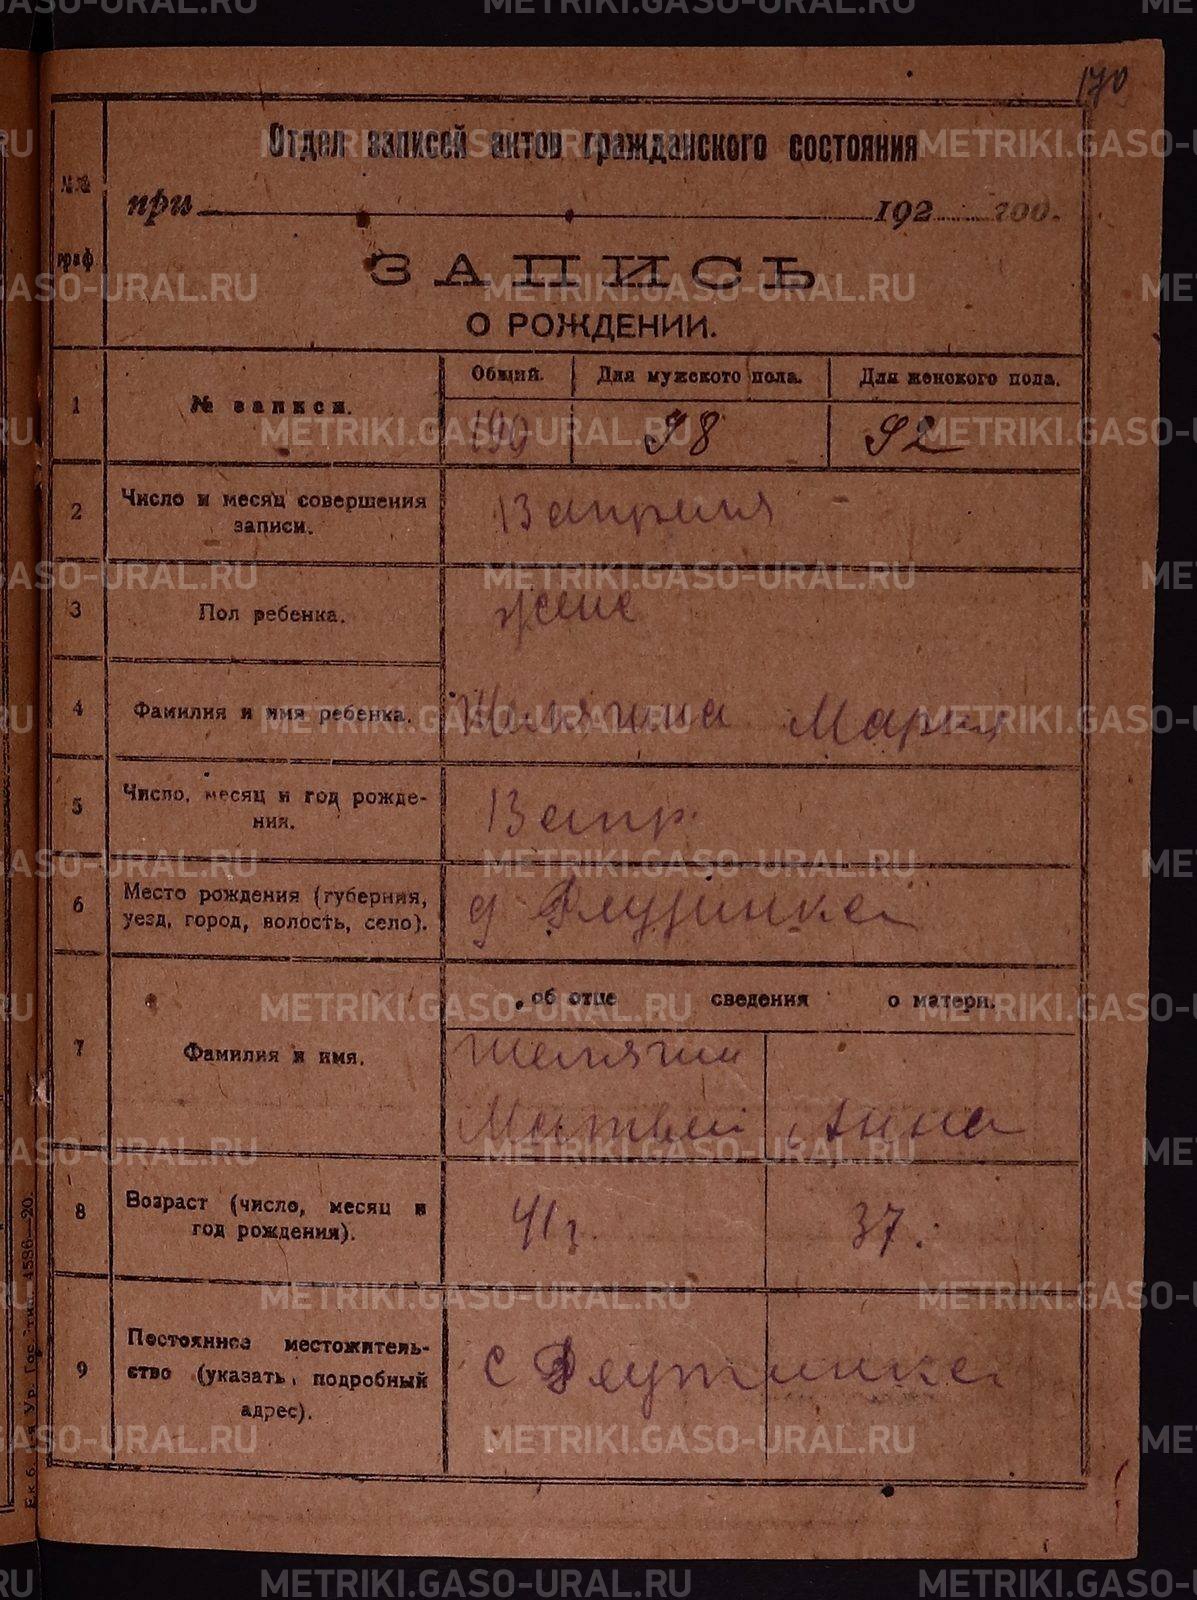 170
Отдел записей актов гражданского состояния
при 192 год.
№№ граф
ЗАПИСЬ
О РОЖДЕНИИ.
1 № записи. Общий. Для мужского пола. Для женского пола.
190 98 92
2 Число и месяц совершения записи. 13 апреля
3 Пол ребенка. женс
4 Фамилия и имя ребенка. Шелягина Мария
5 Число, месяц и год рождения. 13 апр.
6 Место рождения (губерния, уезд, город, волость, село). д
об отце сведения о матери.
7 Фамилия и имя. Шелягин
Матвей Анна
8 Возраст (число, месяц и год рождения). 41 г. 37.
9 Постоянное местожительство (указать подробный адрес). с
4586—20.
METRIKI.GASO-URAL.RU